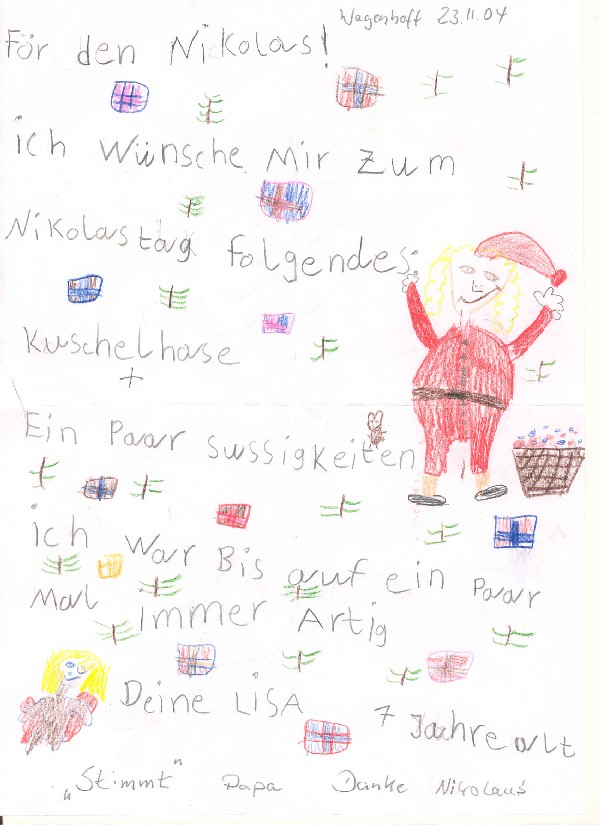 Wagenhoff 23.11.04
För den Nikolas!
ich Wünsche Mir Zum
Nikolastag folgendes:
Kuschelhase
+
Ein Paar sussigkeiten
ich War Bis auf ein Paar
Mal immer Artig
Deine LiSA 7 Jahre alt
„Stimmt" Papa Danke Nikolaus